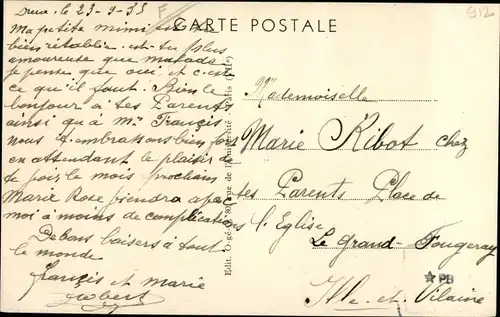 Dreux le 23-9-35
CARTE POSTALE
912
Ma petite mimi est
bien rétablie est-tu plus
amoureuse que malade
je pense que oui et c'est
ce qu'il faut. Bien le
bonjour a tes Parents
ainsi qu'à Mr François
nous t'embrassons bien fort
en attendant le plaisir de
te voir le mois prochain
Marie Rose viendra avec
moi à moins de complications
De bons baisers à tout
le monde
François et Marie
Edit. O-gé-o, 80, Rue de l'Université - Paris (VIIe)
Mademoiselle
Marie Ribot chez
tes Parents Place de
l'Eglise
Le Grand-Fougeray
PB
Ille-et-Vilaine